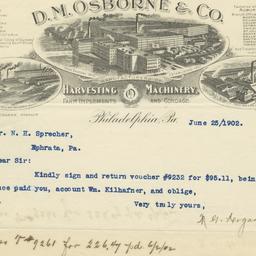 D. M. OSBORNE & CO.
HARVESTING MACHINERY,
FARM IMPLEMENTS AND CORDAGE.
Philadelphia, Pa. June 25/1902.
r. N. H. Sprecher,
Ephrata, Pa.
ear Sir:
Kindly sign and return voucher #9232 for $95.11, bein
nce paid you, account Wm. Kilhafner, and oblige,
Very truly yours,
#9261 for 226.47 pd. 6/2/02